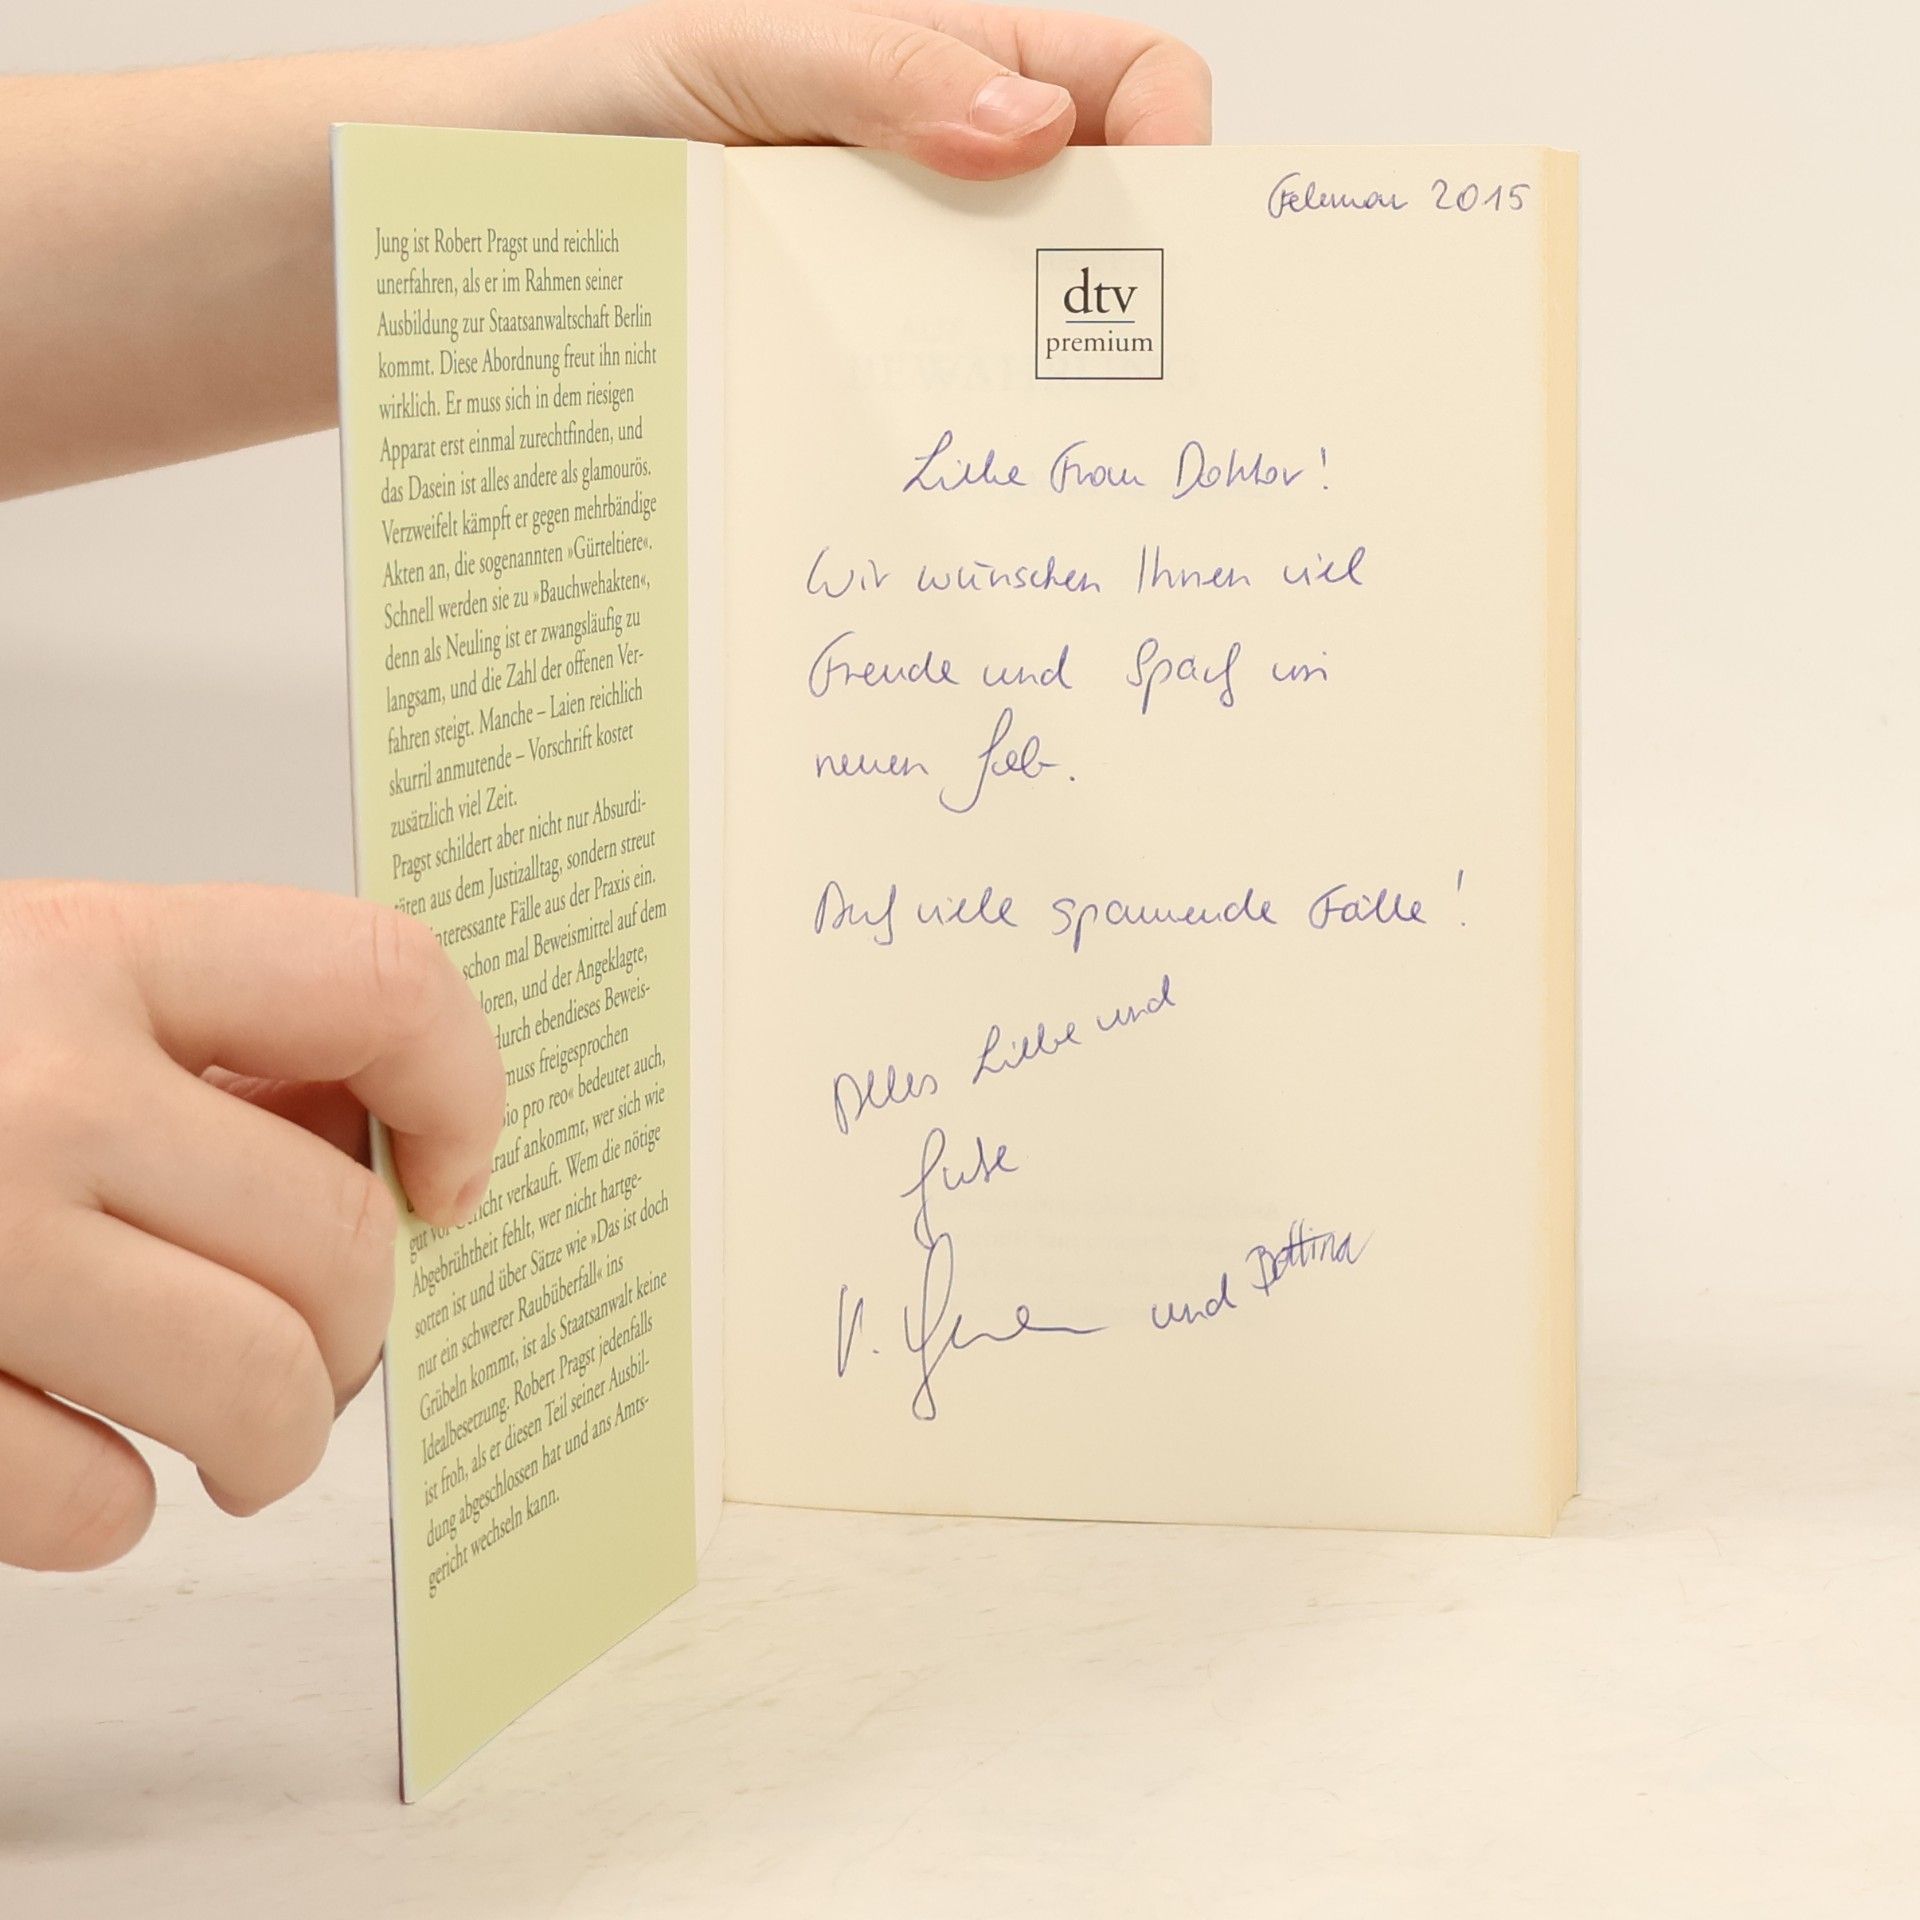 Jung ist Robert Pragst und reichlich
unerfahren, als er im Rahmen seiner
Ausbildung zur Staatsanwaltschaft Berlin
kommt. Diese Abordnung freut ihn nicht
wirklich. Er muss sich in dem riesigen
Apparat erst einmal zurechtfinden, und
das Dasein ist alles andere als glamourös.
Verzweifelt kämpft er gegen mehrbändige
Akten an, die sogenannten »Gürteltiere«.
Schnell werden sie zu »Bauchwehakten«,
denn als Neuling ist er zwangsläufig zu
langsam, und die Zahl der offenen Ver-
fahren steigt. Manche – Laien reichlich
skurril anmutende – Vorschrift kostet
zusätzlich viel Zeit.
Pragst schildert aber nicht nur Absurdi-
täten aus dem Justizalltag, sondern streut
interessante Fälle aus der Praxis ein.
schon mal Beweismittel auf dem
loren, und der Angeklagte,
durch ebendieses Beweis-
muss freigesprochen
pro reo« bedeutet auch,
rauf ankommt, wer sich wie
gut vor Gericht verkauft. Wem die nötige
Abgebrühtheit fehlt, wer nicht hartge-
sotten ist und über Sätze wie »Das ist doch
nur ein schwerer Raubüberfall« ins
Grübeln kommt, ist als Staatsanwalt keine
Idealbesetzung. Robert Pragst jedenfalls
ist froh, als er diesen Teil seiner Ausbil-
dung abgeschlossen hat und ans Amts-
gericht wechseln kann.
Februar 2015
dtv
premium
Liebe Frau Doktor!
Wir wünschen Ihnen viel
Freude und Spaß im
neuen Job.
Auf viele spannende Fälle!
Alles Liebe und
Gute
und Bettina